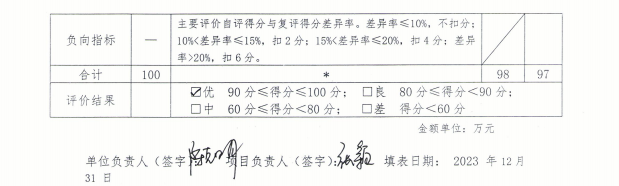 负向指标 — 主要评价自评得分与复评得分差异率。差异率≤10%，不扣分；
10%<差异率≤15%，扣 2 分；15%<差异率≤20%，扣 4 分；差异
率>20%，扣 6 分。
合计 100 * 98 97
评价结果 ☑优 90 分≤得分≤100 分； □良 80 分≤得分<90 分；
□中 60 分≤得分<80 分； □差 得分<60 分
金额单位：万元
单位负责人（签字 项目负责人（签字）：张颖 填表日期： 2023 年 12 月
31 日